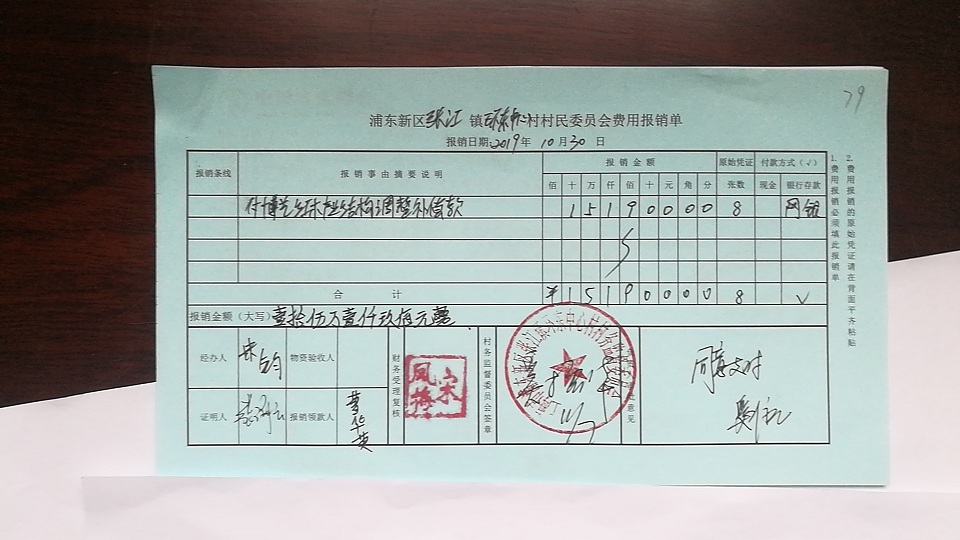 79
浦东新区张江镇环东中心村村民委员会费用报销单
报销日期 2019年 10月30日
报销条线 报销事由摘要说明 报销金额 原始凭证 付款方式（√）
佰 十 万 仟 佰 十 元 角 分 张数 现金 银行存款
付 1 5 1 9 0 0 0 0 8 网银
合计 ¥ 1 5 1 9 0 0 0 0 8 √
报销金额（大写）壹拾伍万壹仟玖佰元整
经办人 物资验收人 财务受理复核 宋凤梅 村务监督委员会签章 意见 同意支付
证明人 报销领款人
1. 费用报销必须填此报销单
2. 费用报销的原始凭证请在背面平齐粘贴